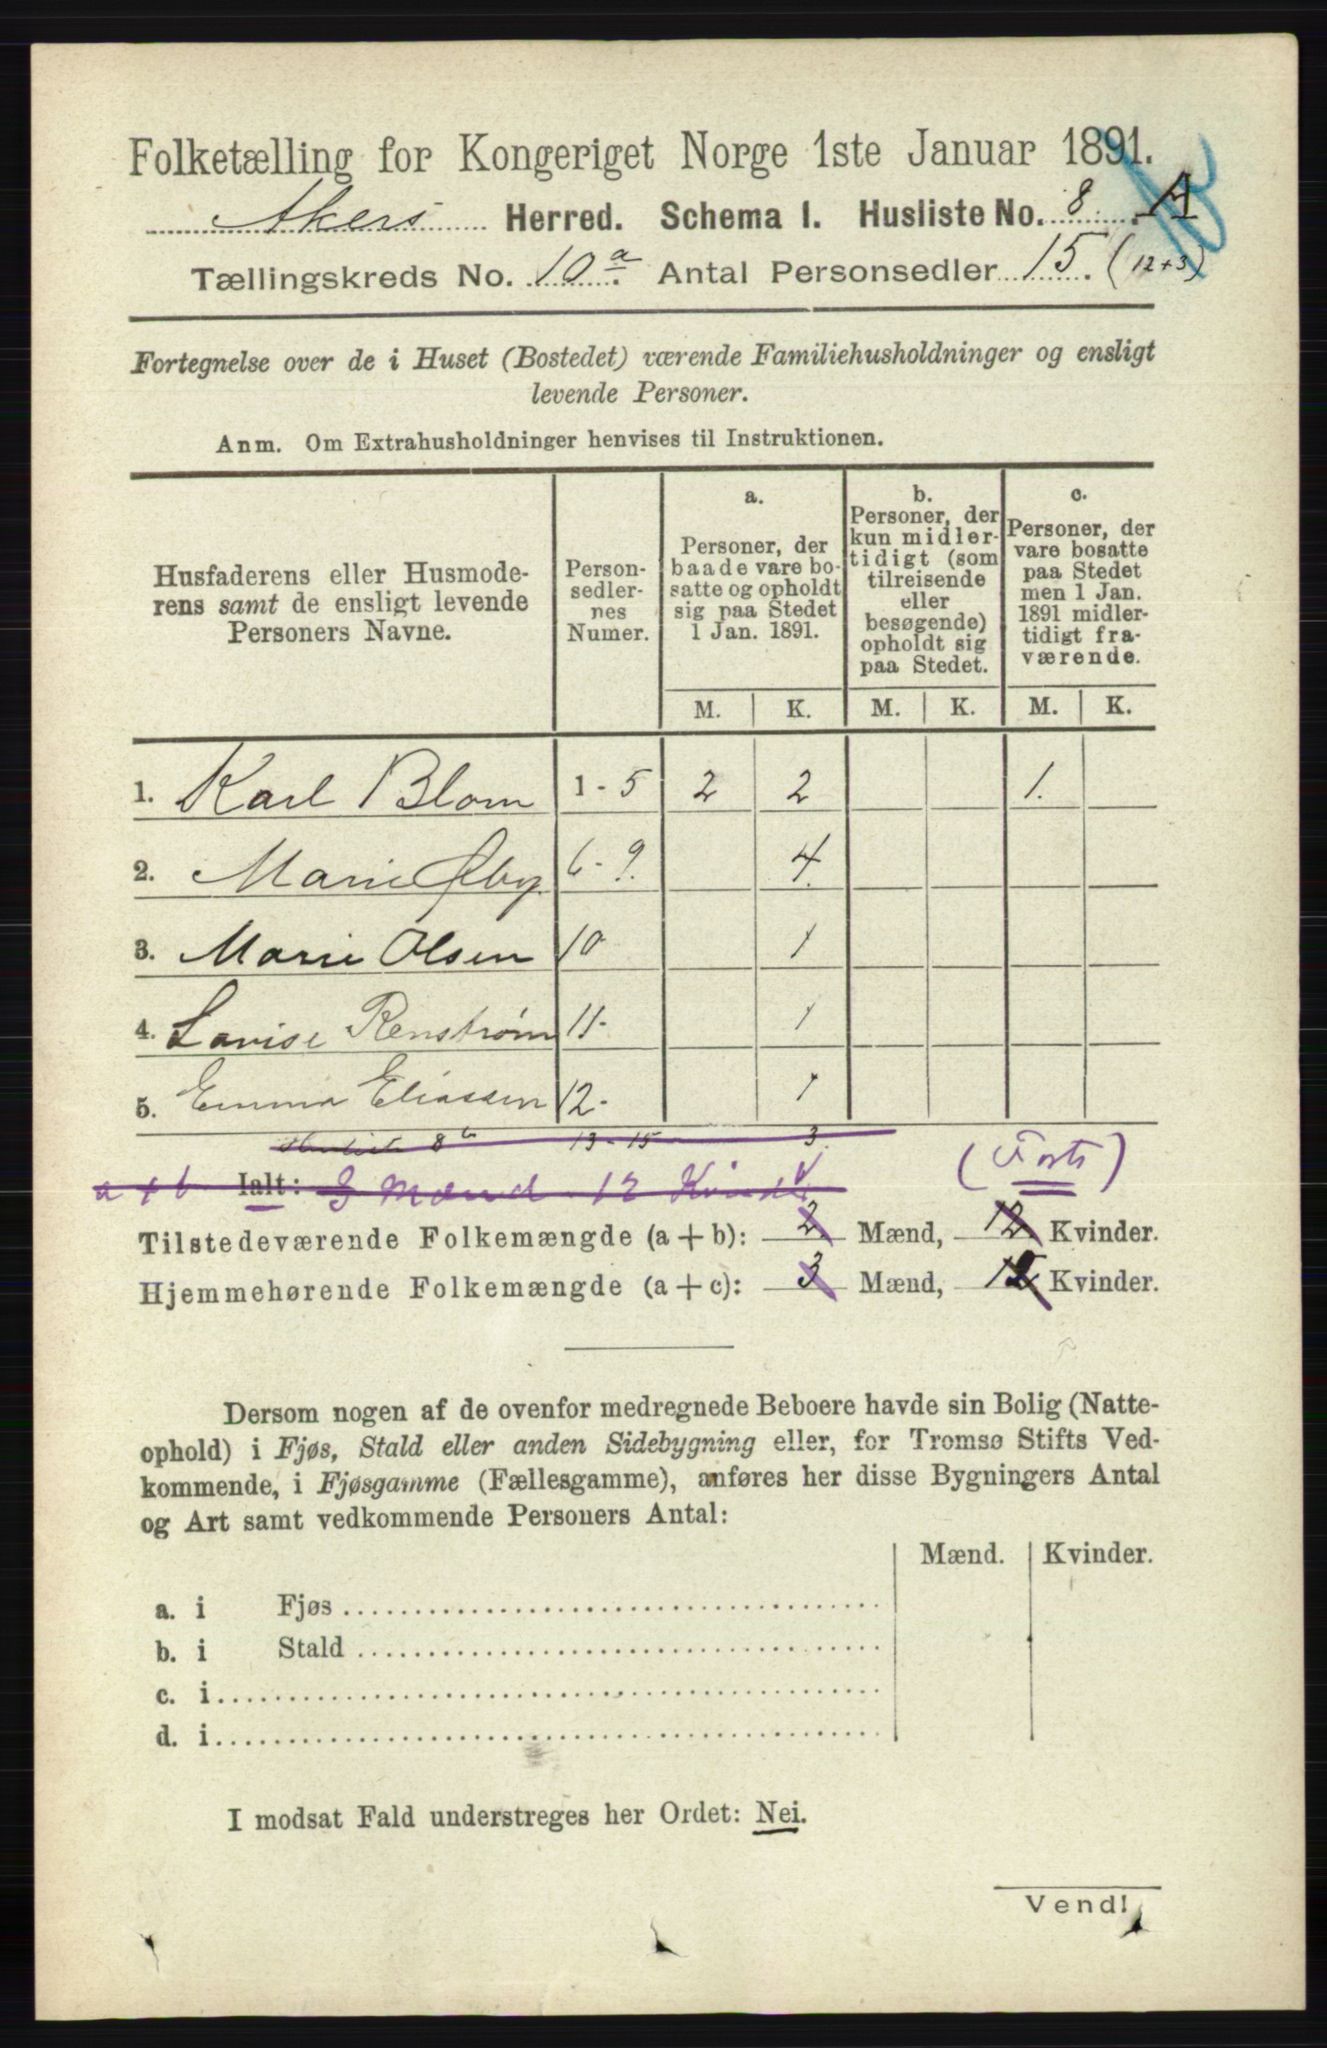 Folketælling for Kongeriget Norge 1ste Januar 1891.
Akers Herred. Schema I. Husliste No. 8 A
Tællingskreds No. 10 a. Antal Personsedler 15. (12+3)
Fortegnelse over de i Huset (Bostedet) værende Familiehusholdninger og ensligt
levende Personer.
Anm. Om Extrahusholdninger henvises til Instruktionen.
Husfaderens eller Husmode-
rens samt de ensligt levende
Personers Navne.
Person-
sedler-
nes
Numer.
a.
Personer, der
baade vare bo-
satte og opholdt
sig paa Stedet
1 Jan. 1891.
b.
Personer, der
kun midler-
tidigt (som
tilreisende
eller
besøgende)
opholdt sig
paa Stedet.
c.
Personer, der
vare bosatte
paa Stedet
men 1 Jan.
1891 midler-
tidigt fra-
værende.
M. K. M. K. M. K.
1. Karl Blom 1 - 5 2 2 1.
2. Marie Øby 6 - 9. 4.
3. Marie Olsen 10 1
4. Lovise Renstrøm 11- 1
5. Emma Eliassen 12- 1
Husliste 8 b 13 - 15 3.
a + b Ialt: 3 Mænd 12 Kvind
(Vorts)
Tilstedeværende Folkemængde (a + b): 2 Mænd, 12 Kvinder.
Hjemmehørende Folkemængde (a + c): 3 Mænd, 12 Kvinder.
Dersom nogen af de ovenfor medregnede Beboere havde sin Bolig (Natte-
ophold) i Fjøs, Stald eller anden Sidebygning eller, for Tromsø Stifts Ved-
kommende, i Fjøsgamme (Fællesgamme), anføres her disse Bygningers Antal
og Art samt vedkommende Personers Antal:
Mænd. Kvinder.
a. i Fjøs
b. i Stald
c. i
d. i
I modsat Fald understreges her Ordet: Nei.
Vend!